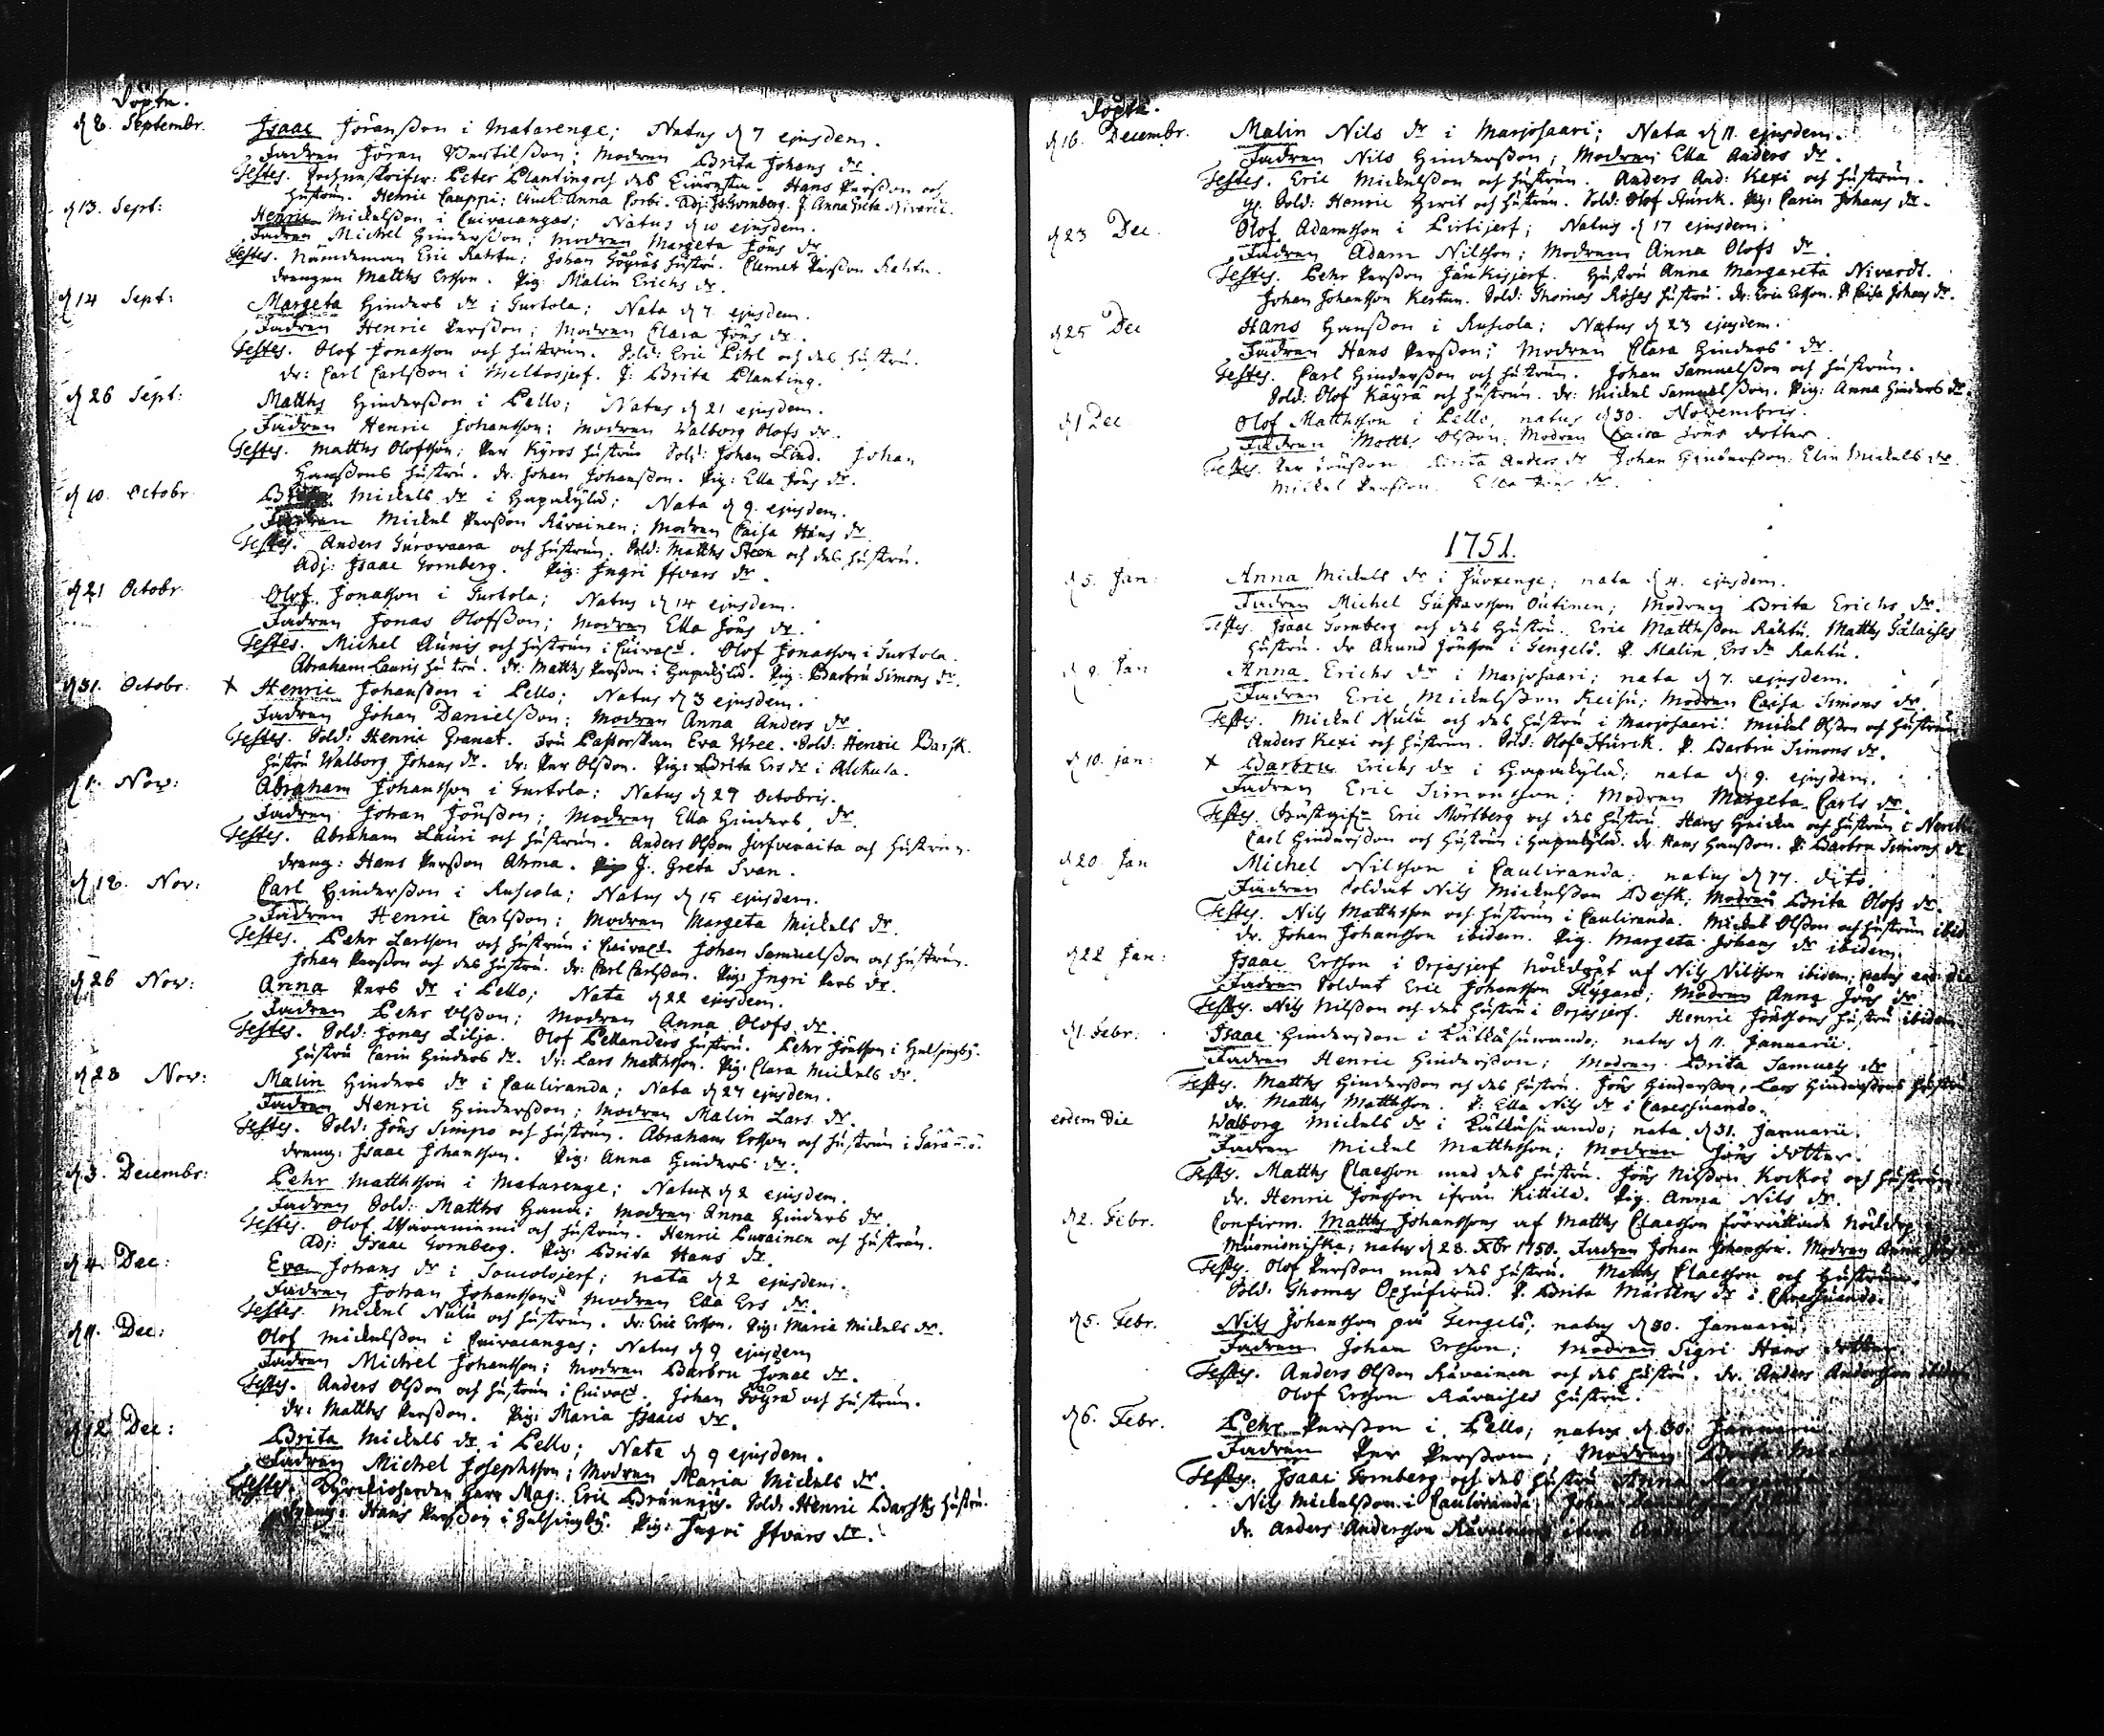 Döpte.
d 8. Septembr. Isaac Jöransson i Matarenge; Natus d 7 ejusdem.
Fadren Jöran Bertilsson; Modren Brita Johans dr.
Testes. Peter Planting och des Hans Persson och
hustrun. Henric Lauppi; Anna Corbi. Adj: Js: Tornberg. J. Anna Greta Nivardt.
d 13. Sept: Henric Mickelsson i Cuivacangas; Natus d 10 ejusdem.
Fadren Michel Hindersson; Modren Margeta Jöns dr.
Testes. Nämdeman Eric Rahtu; Johan hustru. Clemet Persson Rahtu.
drengen Matths Ersson. Pig: Malin Erichs dr.
d 14 Sept: Margeta Hinders dr i Turtola; Nata d 7 ejusdem.
Fadren Henric Persson; Modren Clara Jöns dr.
Testes. Olof Jonasson och hustrun. Sold: Eric Pihl och des hustru.
dr: Carl Carlsson i Meltosjerf. J: Brita Planting.
d 26 Sept: Matths Hindersson i Pello; Natus d 21 ejusdem.
Fadren Henric Johansson; Modren Walborg Olofs dr.
Testes. Matths Olofsson; Per Kyrös hustru Sold: Johan Lind. Johan
Hanssons hustru. dr. Johan Johansson. Pig: Ella Jöns dr.
d 10. Octobr. Mickels dr i Hapakylä; Nata d 9. ejusdem.
Fadren Mickel Persson Rävainen; Modren Caisa Hans dr.
Testes. Anders Turovaara och hustrun. Sold: Matths Steen och des hustru.
Adj: Isaac Tornberg. Pig: Ingri Ifvars dr.
d 21 Octobr Olof Jonasson i Turtola; Natus d 14 ejusdem.
Fadren Jonas Olofsson; Modren Ella Jöns dr.
Testes. Michel Aunis och hustrun i Cuivac. Olof Jonasson i Turtola.
Abraham Lauris hustru. dr: Matths Persson i Hapakylä. Pig: Barbru Simons dr.
d 31. Octobr: x Henric Johansson i Pello; Natus d 3 ejusdem.
Fadren Johan Danielsson; Modren Anna Anders dr.
Testes. Sold: Henric Granat. Fru Pastorskan Eva Wree. Sold: Henric Barsk.
hustru Walborg Johans dr. dr: Per Olsson. Pig: Brita Ers dr i Alckula.
d 1. Nov: Abraham Johansson i Turtola; Natus d 29 Octobris.
Fadren Johan Jönsson; Modren Ella Hinders dr.
Testes. Abraham Lauri och hustrun. Anders Olsson Jerfvenaita och hustrun.
dreng: Hans Persson Ahma. J. Greta Svan.
d 18. Nov: Carl Hindersson i Ruscola; Natus d 15 ejusdem.
Fadren Henric Carlsson; Modren Margeta Mickels dr.
Testes. Pehr Larsson och hustrun i Cuivac. Johan Samuelsson och hustrun.
Johan Persson och des hustru. dr: Carl Carlsson. Pig: Ingri Pers dr.
d 26 Nov: Anna Pers dr i Pello; Nata d 22 ejusdem.
Fadren Pehr Olsson; Modren Anna Olofs dr.
Testes. Sold: Jonas Lilja. Olof Pellanders hustru. Pehr Jönsson i Helsingby.
hustru Carin Hinders dr. dr: Lars Matthsson. Pig: Clara Mickels dr.
d 28 Nov: Malin Hinders dr i Cauliranda; Nata d 27 ejusdem.
Fadren Henric Hindersson; Modren Malin Lars dr.
Testes. Sold: Jöns Simpo och hustrun. Abraham Ersson och hustrun i
dreng: Isaac Johansson. Pig: Anna Hinders dr.
d 3. Decembr: Pehr Matthsson i Matarenge; Natus d 2 ejusdem.
Fadren Sold: Matths Hane; Modren Anna Hinders dr.
Testes. Olof Waaraniemi och hustrun. Henric Purainen och hustrun.
Adj: Isaac Tornberg. Pig: Brita Hans dr.
d 4. Dec: Eva Johans dr i Toucolojerf; nata d 2 ejusdem.
Fadren Johan Johansson; Modren Ella Ers dr.
Testes. Mickel Nulu och hustrun. dr: Eric Ersson. Pig: Maria Mickels dr.
d 11. Dec: Olof Mickelsson i Cuivacangas; Natus d 9 ejusdem
Fadren Michel Johansson; Modren Barbru Jonae dr.
Testes. Anders Olsson och hustrun i Cuivac. Johan och hustrun.
dr: Matths Persson. Pig: Maria Isaacs dr.
d 12 Dec: Brita Mickels dr i Pello; Nata d 9 ejusdem.
Fadren Michel Josephsson; Modren Maria Mickels dr.
Testes. Kyrckioherden Herr Mag: Eric Brunnius. Sold: Henric Barsks hustru.
dreng: Hans Persson i Helsingby. Pig: Ingri Ifvars dr.
Döpte.
d 16. Decembr. Malin Nils dr i Marjosaari; Nata d 11. ejusdem.
Fadren Nils Hindersson; Modren Ella Anders dr.
Testes. Eric Mickelsson och hustrun. Anders And: Kexi och hustrun.
Sold: Henric och hustrun. Sold: Olof Sturck. Pig: Carin Johans dr.
d 23 Dec. Olof Adamsson i Pirtijerf; Natus d 17 ejusdem.
Fadren Adam Nilsson; Modren Anna Olofs dr.
Testes. Pehr Persson Jänkisjerf. Hustru Anna Margareta Nivardt.
Johan Johansson Kestin. Sold: Thomas Roses hustru. dr: Eric Ersson. P: Caisa Johans dr.
d 25 Dec Hans Hansson i Ruscola; Natus d 23 ejusdem.
Fadren Hans Persson; Modren Clara Hinders dr.
Testes. Carl Hindersson och hustrun. Johan Samuelsson och hustrun.
Sold: Olof Käyrä och hustrun. dr: Mickel Samuelsson. Pig: Anna Hinders dr.
d 1 Dec Olof Matthsson i Pello, natus d 30. Novembris.
Fadren Matths Olsson; Modren Caisa Jöns dotter.
Testes. Per Jönsson. Brita Anders dr Johan Hindersson. Elin Mickels dr.
Mickel Persson. Ella Jöns dr.
1751.
d 5. Jan: Anna Mickels dr i Juoxenge; nata d 4. ejusdem.
Fadren Michel Gustavsson Outinen; Modren Brita Erichs dr.
Testes. Isaac Tornberg och des hustru. Eric Matthsson Rahtu. Matths
hustru. dr Amund Jönsson i Tengelö. P. Malin Ers dr Rahtu.
d 9. Jan Anna Erichs dr i Marjosaari; nata d 7. ejusdem.
Fadren Eric Mickelsson Keisu; Modren Caisa Simons dr.
Testes. Mickel Nulu och des hustru i Marjosaari. Mickel Olsson och hustrun
Anders Kexi och hustrun. Sold: Olof Sturck. P. Barbru Simons dr.
d 10. Jan: x Barbru Erichs dr i Hapakylä; nata d 9. ejusdem.
Fadren Eric Simonsson; Modren Margeta Carls dr.
Testes. Gästgifn Eric Mörtberg och des hustru. Hans och hustrun i
Carl Hindersson och hustrun i Hapakylä. dr. Hans Hansson. P. Barbru Simons dr
d 20. Jan Michel Nilsson i Cauliranda; natus d 17. dito.
Fadren Soldat Nils Mickelsson Besk; Modren Brita Olofs dr.
Testes. Nils Matthsson och hustrun i Cauliranda. Mickel Olsson och hustrun ibid
dr. Johan Johansson ibidem. Pig. Margeta Johans dr ibidem.
d 22 Jan: Isaac Ersson i Orjasjerf nöddöpt af Nils Nilsson ibidem; natus
Fadren Soldat Eric Johansson Flygare; Modren Anna Jöns dr.
Testes. Nils Nilsson och des hustru i Orjasjerf. Henric Jönssons hustru ibidem.
d 1. Febr: Isaac Hindersson i Kätkäsuwando; natus d 11. Januarii.
Fadren Henric Hindersson; Modren Brita Samuels dr
Testes. Matths Hindersson och des hustru. Jöns Hindersson, Lars Hinderssons hustru
dr. Matths Matthsson. P: Ella Nils dr i Caresuando.
eodem Die Walborg Mickels dr i Kätkäsuando; nata d 31. Januarii.
Fadren Mickel Matthsson; Modren Jöns dotter.
Testes. Matths Claesson med des hustru. Jöns Nilsson Kockoi och hustrun
dr. Henric Jönsson ifrån Kittilä. Pig. Anna Nils dr.
d 2. Febr. Confirm. Matths Johanssons af Matths Claesson förrättade nöddop
Muonioniska; natus d 28. Xbr 1750. Fadren Johan Johansson. Modren Anna
Testes. Olof Persson med des hustru. Matths Claesson och hustrun.
Sold: Thomas P. Brita Mårtens dr i Caresuando.
d 5. Febr. Nils Johansson på Tengelö; natus d 30. Januarii.
Fadren Johan Ersson; Modren Sigri Hans dotter
Testes. Anders Olsson Rävainen och des hustru. dr. Anders Andersson ibidem
Olof Ersson Rävaises hustru.
d 6. Febr. Pehr Persson i Pello; natus d 30. Januarii.
Fadren Per Persson; Modren Brita
Testes. Isaac Tornberg och des hustru Anna Margareta
Nils Mickelsson i Cauliranda. Johan
dr. Anders Andersson Rävainen